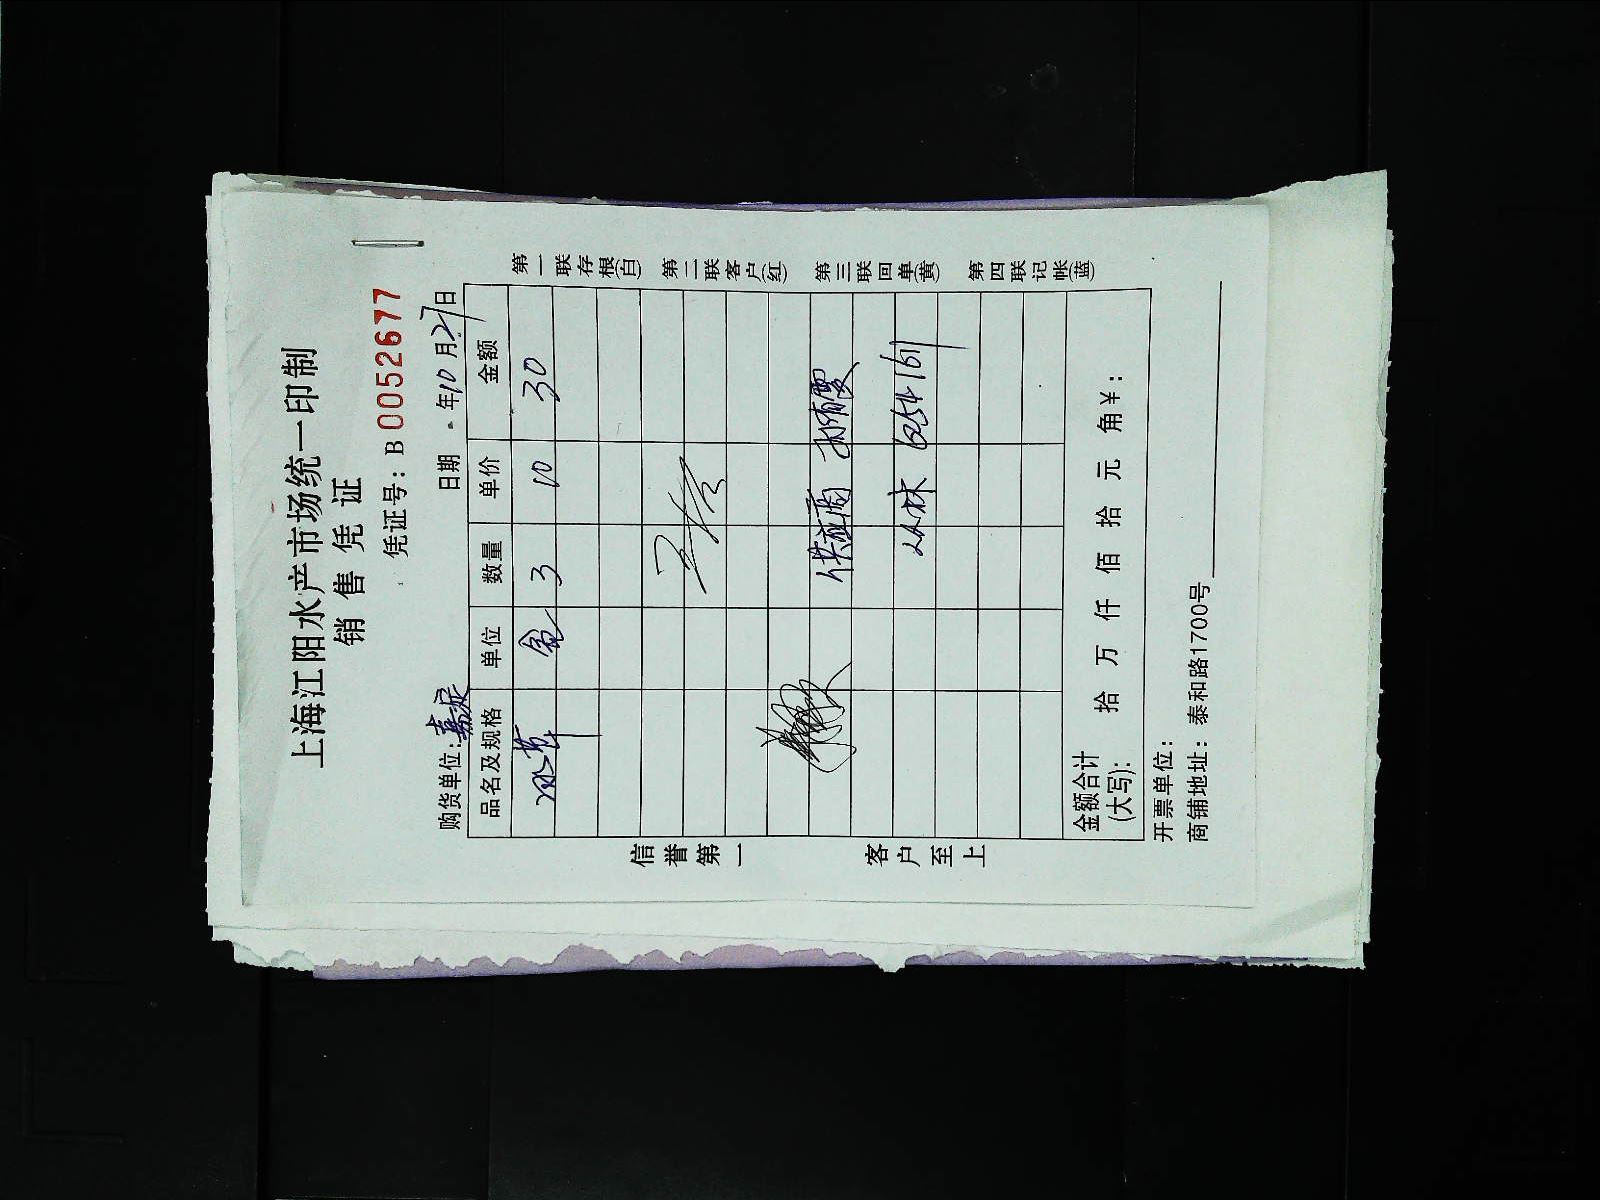 上海江阳水产市场统一印制
销售凭证
凭证号：B 0052677
购货单位：嘉定 日期 年10月27日
品名及规格 单位 数量 单价 金额
3 10 30
供应商
654161
金额合计(大写)： 拾 万 仟 佰 拾 元 角 ¥：
开票单位：
商铺地址：泰和路1700号
信誉第一 客户至上
第一联存根(白) 第二联客户(红) 第三联回单(黄) 第四联记帐(蓝)